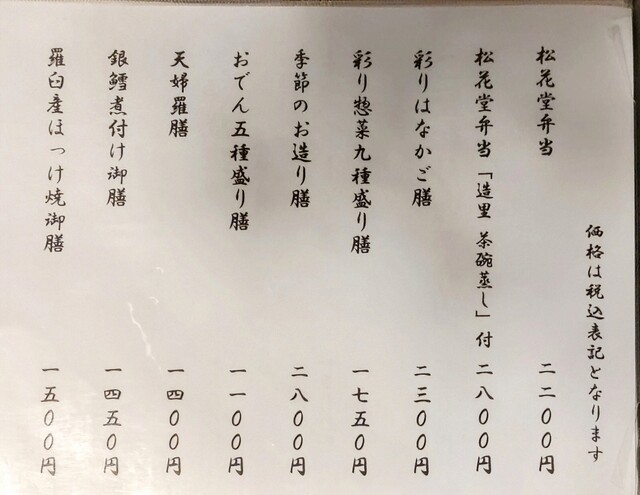 価格は税込表記となります
松花堂弁当 二二〇〇円
松花堂弁当「造里 茶碗蒸し」付 二八〇〇円
彩りはなかご膳 二三〇〇円
彩り惣菜九種盛り膳 一七五〇円
季節のお造り膳 二八〇〇円
おでん五種盛り膳 一一〇〇円
天婦羅膳 一四〇〇円
銀鱈煮付け御膳 一四五〇円
羅臼産ほっけ焼御膳 一五〇〇円